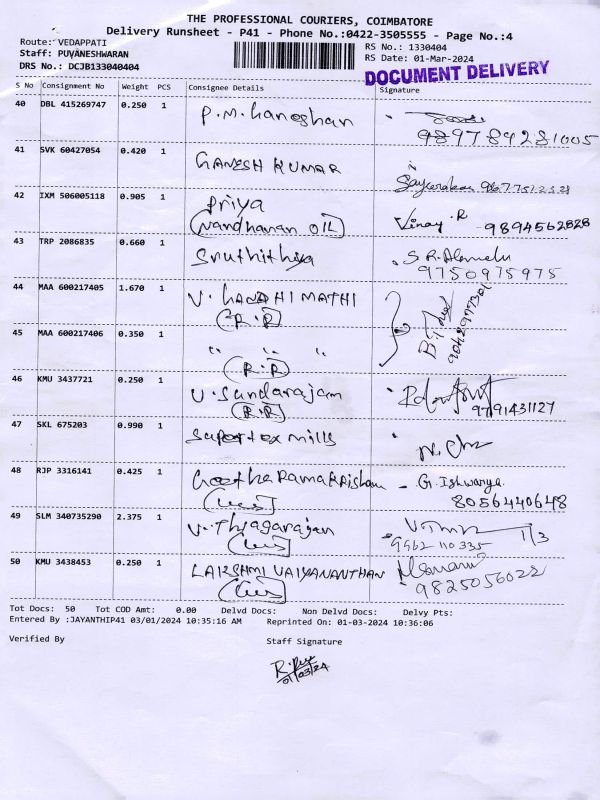 THE PROFESSIONAL COURIERS, COIMBATORE
Delivery Runsheet - P41 - Phone No.:0422-3505555 - Page No.:4
Route: VEDAPPATI
RS No.: 1330404
Staff: PUVANESHWARAN
RS Date: 01-Mar-2024
DRS No.: DCJB133040404
DOCUMENT DELIVERY
S No Consignment No Weight PCS Consignee Details Signature
40 DBL 415269747 0.250 1 P.M. Ganeshan
41 SVK 60427054 0.420 1 GANESH KUMAR
42 IXM 506005118 0.905 1 Priya Vinay.R
(Nandhanan OIL) 9894562828
43 TRP 2086835 0.660 1 Sruthithya
9750975975
44 MAA 600217405 1.670 1 V.
(R.R)
45 MAA 600217406 0.350 1 " " "
(R.R)
46 KMU 3437721 0.250 1 V. Sundarajam
(R.R) 9791431127
47 SKL 675203 0.990 1 Supertex mills
48 RJP 3316141 0.425 1 Geetha Ramakrishan - G. Ishwarya
8056440648
49 SLM 340735290 2.375 1 V. Thyagarajan
9962 110 335 1/3
50 KMU 3438453 0.250 1 LAKSHMI VAIYANANTHAN
9825056022
Tot Docs: 50 Tot COD Amt: 0.00 Delvd Docs: Non Delvd Docs: Delvy Pts:
Entered By :JAYANTHIP41 03/01/2024 10:35:16 AM Reprinted On: 01-03-2024 10:36:06
Verified By Staff Signature
01/03/24